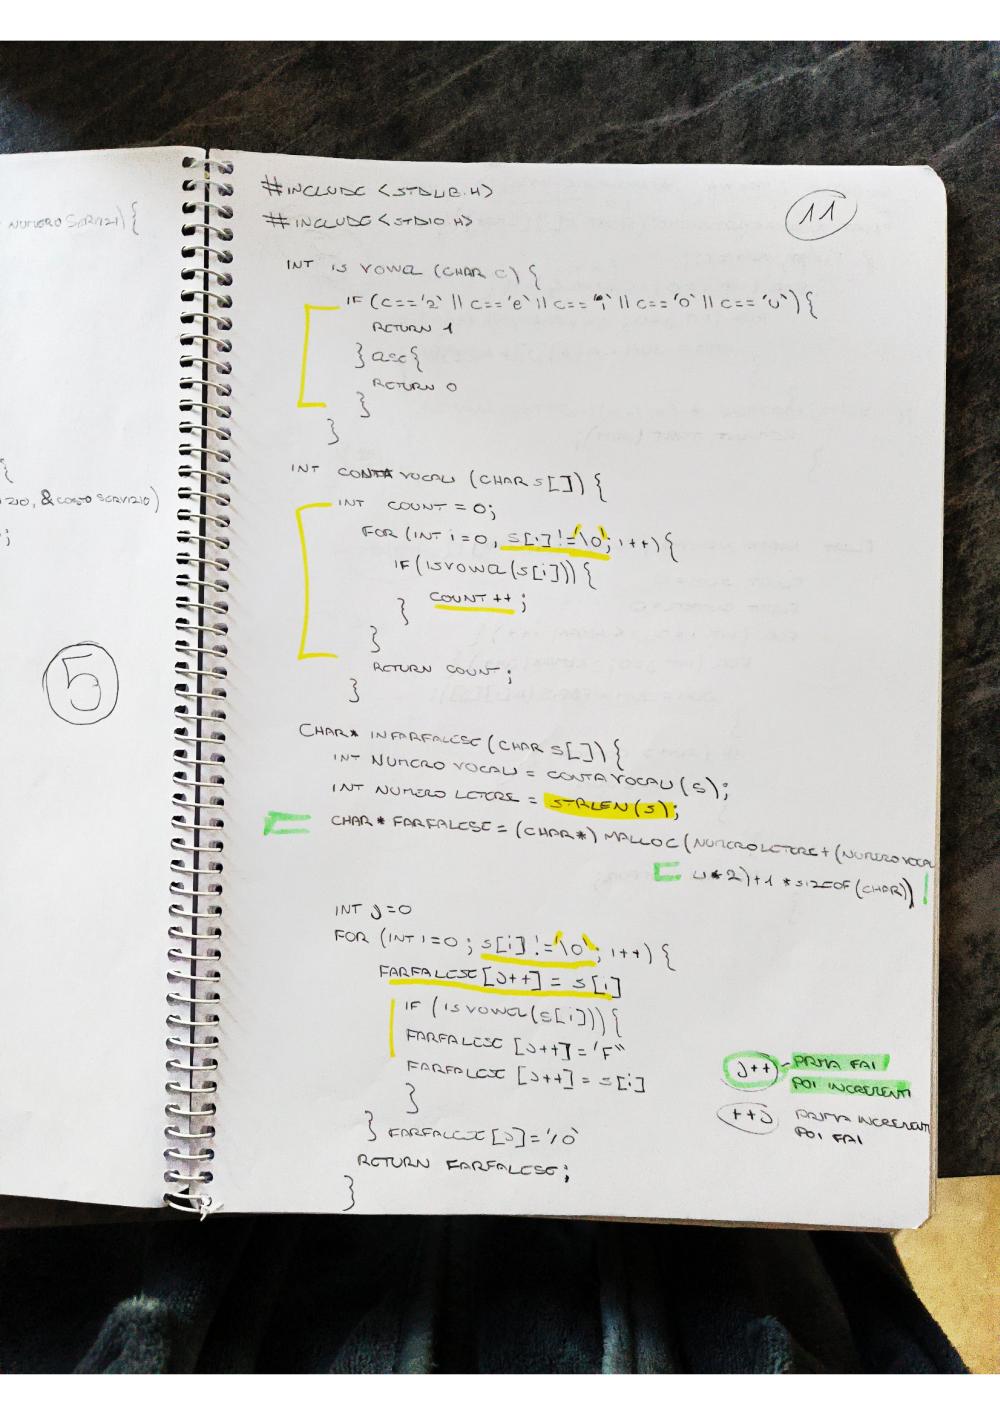 NUMERO SERVIZI) {
{
ZIO, & COSTO SERVIZIO)
;
5
#INCLUDE <STDLIB.H>
#INCLUDE <STDIO.H>
11
INT IS VOWEL (CHAR C) {
IF (C=='a' || C=='e' || C=='i' || C=='o' || C=='u') {
RETURN 1
} ELSE {
RETURN 0
}
}
INT CONTA VOCALI (CHAR S[]) {
INT COUNT = 0;
FOR (INT i=0, S[i] != '\0'; i++) {
IF (ISVOWEL(S[i])) {
COUNT ++ ;
}
}
RETURN COUNT;
}
CHAR* INFARFALLESE (CHAR S[]) {
INT NUMERO VOCALI = CONTA VOCALI (S);
INT NUMERO LETTERE = STRLEN(S);
CHAR* FARFALLESE = (CHAR*) MALLOC (NUMERO LETTERE + (NUMERO VOCA
LI * 2) + 1 * SIZEOF (CHAR)) !
INT J=0
FOR (INT i=0 ; S[i] != '\0' ; i++) {
FARFALLESE [J++] = S[i]
IF (ISVOWEL(S[i])) {
FARFALLESE [J++] = 'F"
FARFALLESE [J++] = S[i]
}
} FARFALLESE [J] = '/0'
RETURN FARFALLESE;
}
J++ - PRIMA FAI
POI INCREMENTI
++J PRIMA INCREMENTI
POI FAI